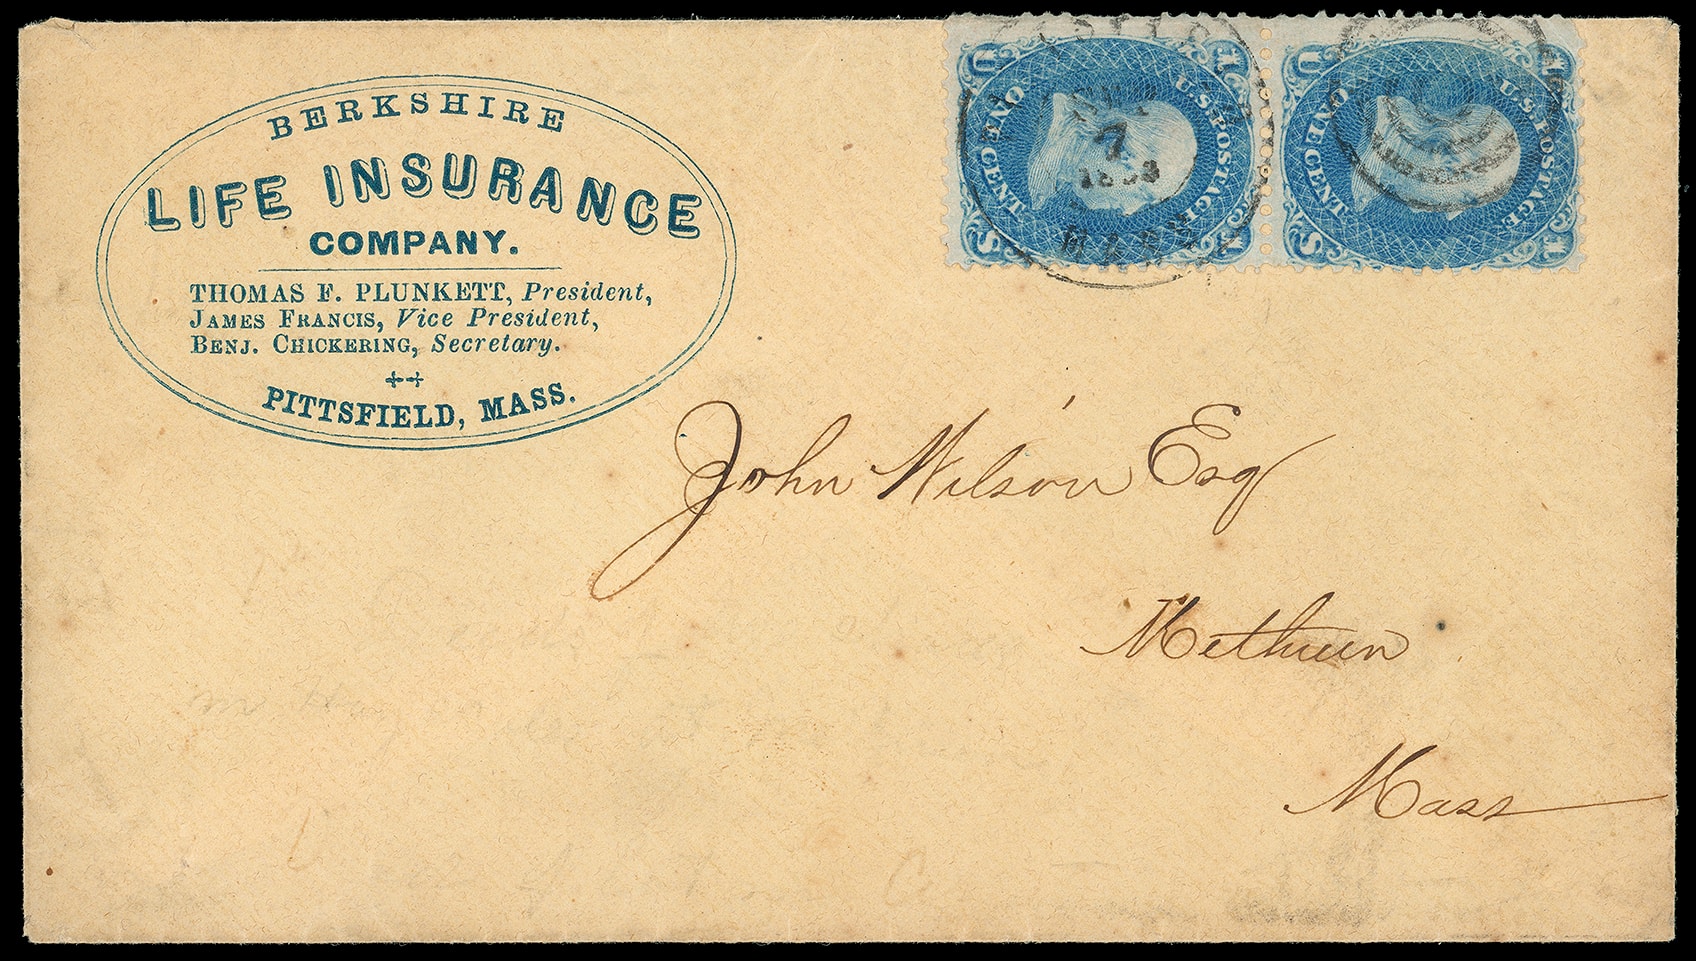 BERKSHIRE
LIFE INSURANCE
COMPANY.
THOMAS F. PLUNKETT, President,
JAMES FRANCIS, Vice President,
BENJ. CHICKERING, Secretary.
PITTSFIELD, MASS.
U 1
ONE CENT
U.S. POSTAGE
S 1
U 1
ONE CENT
U.S. POSTAGE
S 1
7
MASS
John Wilson Esq
Methuen
Mass